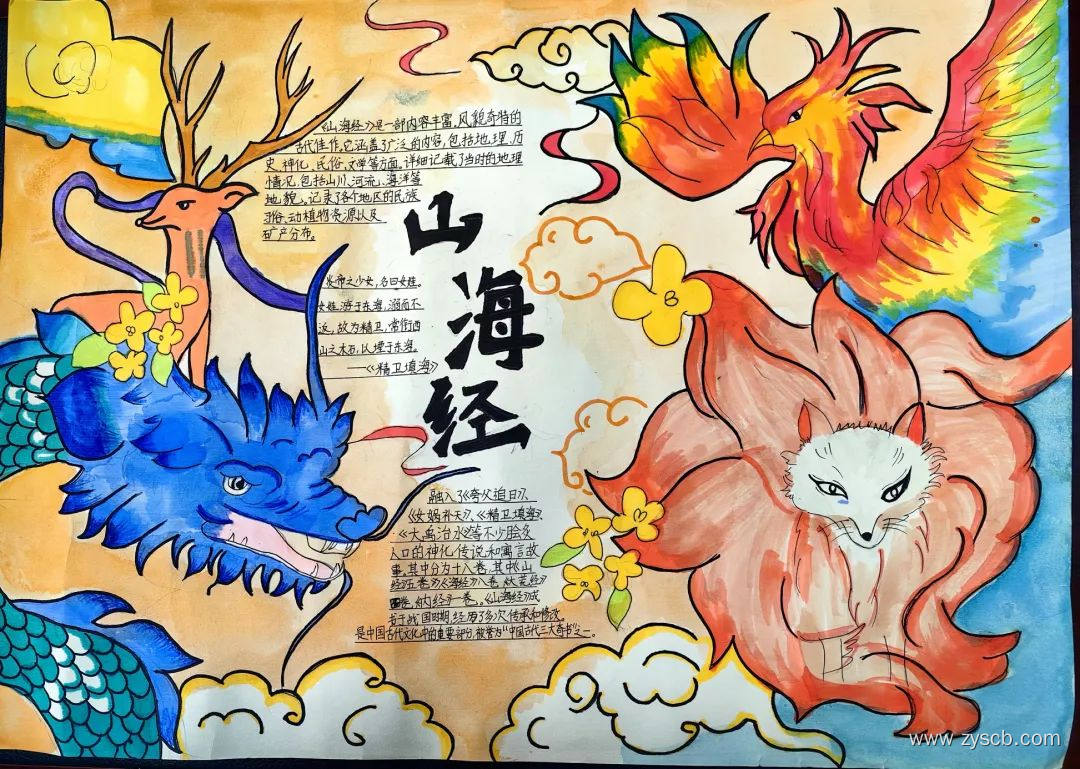 《山海经》是一部内容丰富,风貌奇特的
古代佳作,它涵盖了广泛的内容,包括地理、历
史、神化、民俗、文学等方面,详细记载了当时的地理
情况,包括山川、河流、海洋等
地貌,记录了各个地区的民族
习俗、动植物资源以及
矿产分布。
山
海
经
炎帝之少女,名曰女娃。
女娃游于东海,溺而不
返,故为精卫,常衔西
山之木石,以堙于东海。
——《精卫填海》
融入了《夸父追日》、
《女娲补天》、《精卫填海》、
《大禹治水》等不少脍炙
人口的神化传说和寓言故
事,其中分为十八卷,其中《山
经》五卷》《海经》八卷《大荒经》
卷,《内经》一卷,《山海经》成
书于战国时期,经历了多次传承和修改,
是中国古代文化中的重要部分,被誉为“中国古代三大奇书”之一。
www.zyscb.com